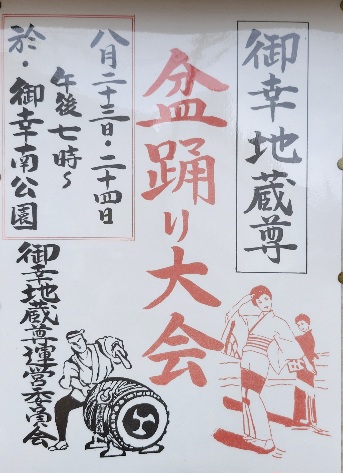 御幸地蔵尊
盆踊り大会
八月二十三日・二十四日
午後七時〜
於・御幸南公園
御幸地蔵尊運営委員会